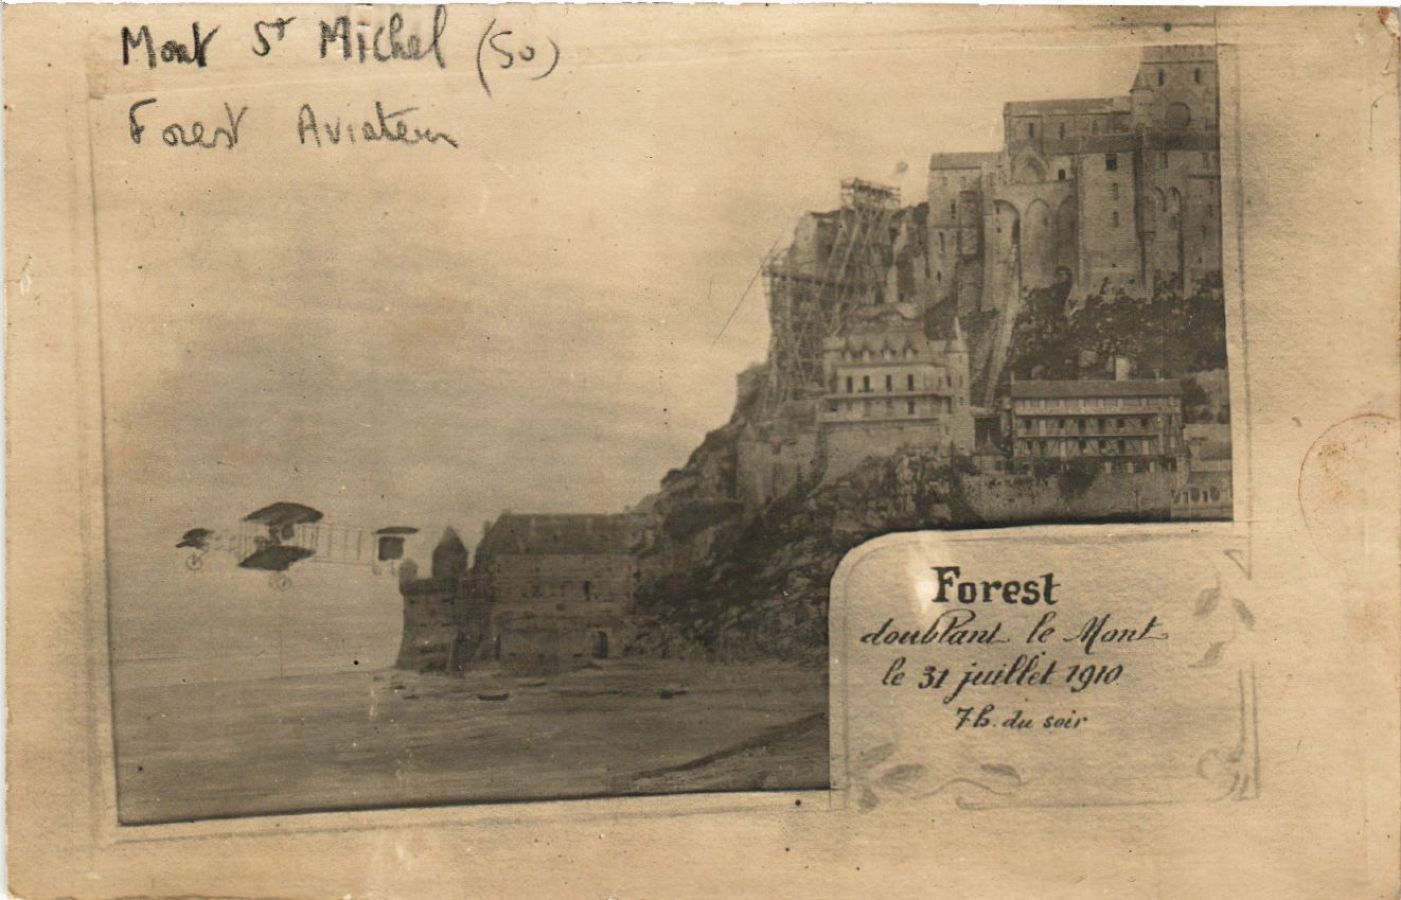 Mont St Michel (50)
Forest Aviateur
Forest
doublant le Mont
le 31 juillet 1910
7h. du soir